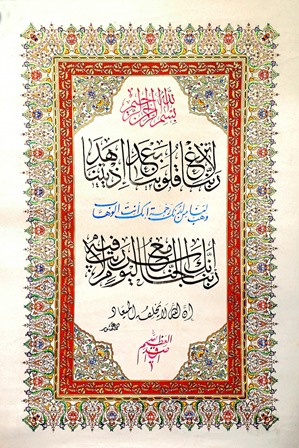 بسم الله الرحمن الرحيم
ربنا لا تزغ قلوبنا بعد إذ هديتنا
وهب لنا من لدنك رحمة إنك أنت الوهاب
ربنا إنك جامع الناس ليوم لا ريب فيه
إن الله لا يخلف الميعاد
صدق الله العظيم